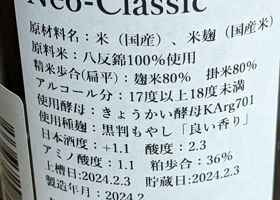 Neo-Classic
原材料名：米（国産）、米麹（国産米）
原料米：八反錦100%使用
精米歩合(扁平)：麹米80%　掛米80%
アルコール分：17度以上18度未満
使用酵母：きょうかい酵母KArg701
使用種麹：黒判もやし「良い香り」
日本酒度：+1.1　酸度：2.3
アミノ酸度：1.1　粕歩合：36%
上槽日:2024.2.3　貯蔵日:2024.2
製造年月：2024.2